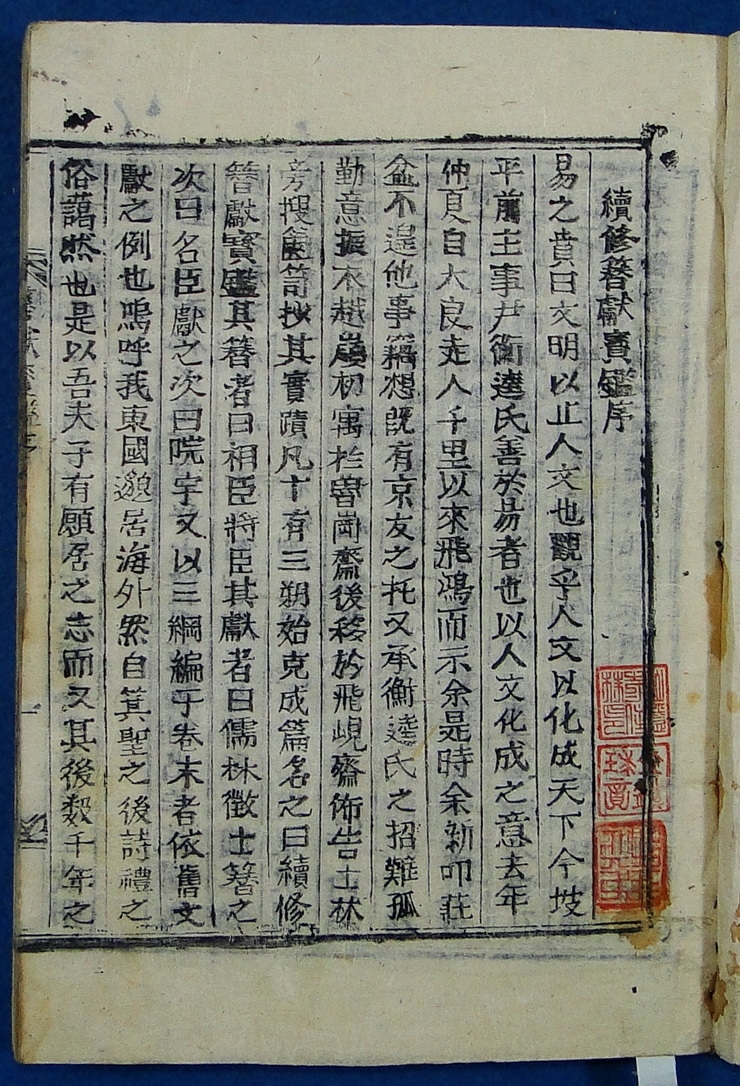 續修簪獻寶鑑序
易之賁曰文明以止人文也觀乎人文以化成天下今坡
平前主事尹衡逵氏善於易者也以人文化成之意去年
仲夏自大良走人千里以來飛鴻而示余是時余新叩莊
盆不遑他事竊想旣有京友之托又承衡逵氏之招難孤
勤意振衣越嶺初寓於魯崗齋後移於飛峴齋佈告士林
旁搜篋笥抄其實蹟凡十有三朔始克成篇名之曰續修
簪獻寶鑑其簪者曰相臣將臣其獻者曰儒林徵士簪之
次曰名臣獻之次曰院宇又以三綱編于卷末者依舊文
獻之例也嗚呼我東國邈居海外然自箕聖之後詩禮之
俗藹然也是以吾夫子有願居之志而又其後數千年之